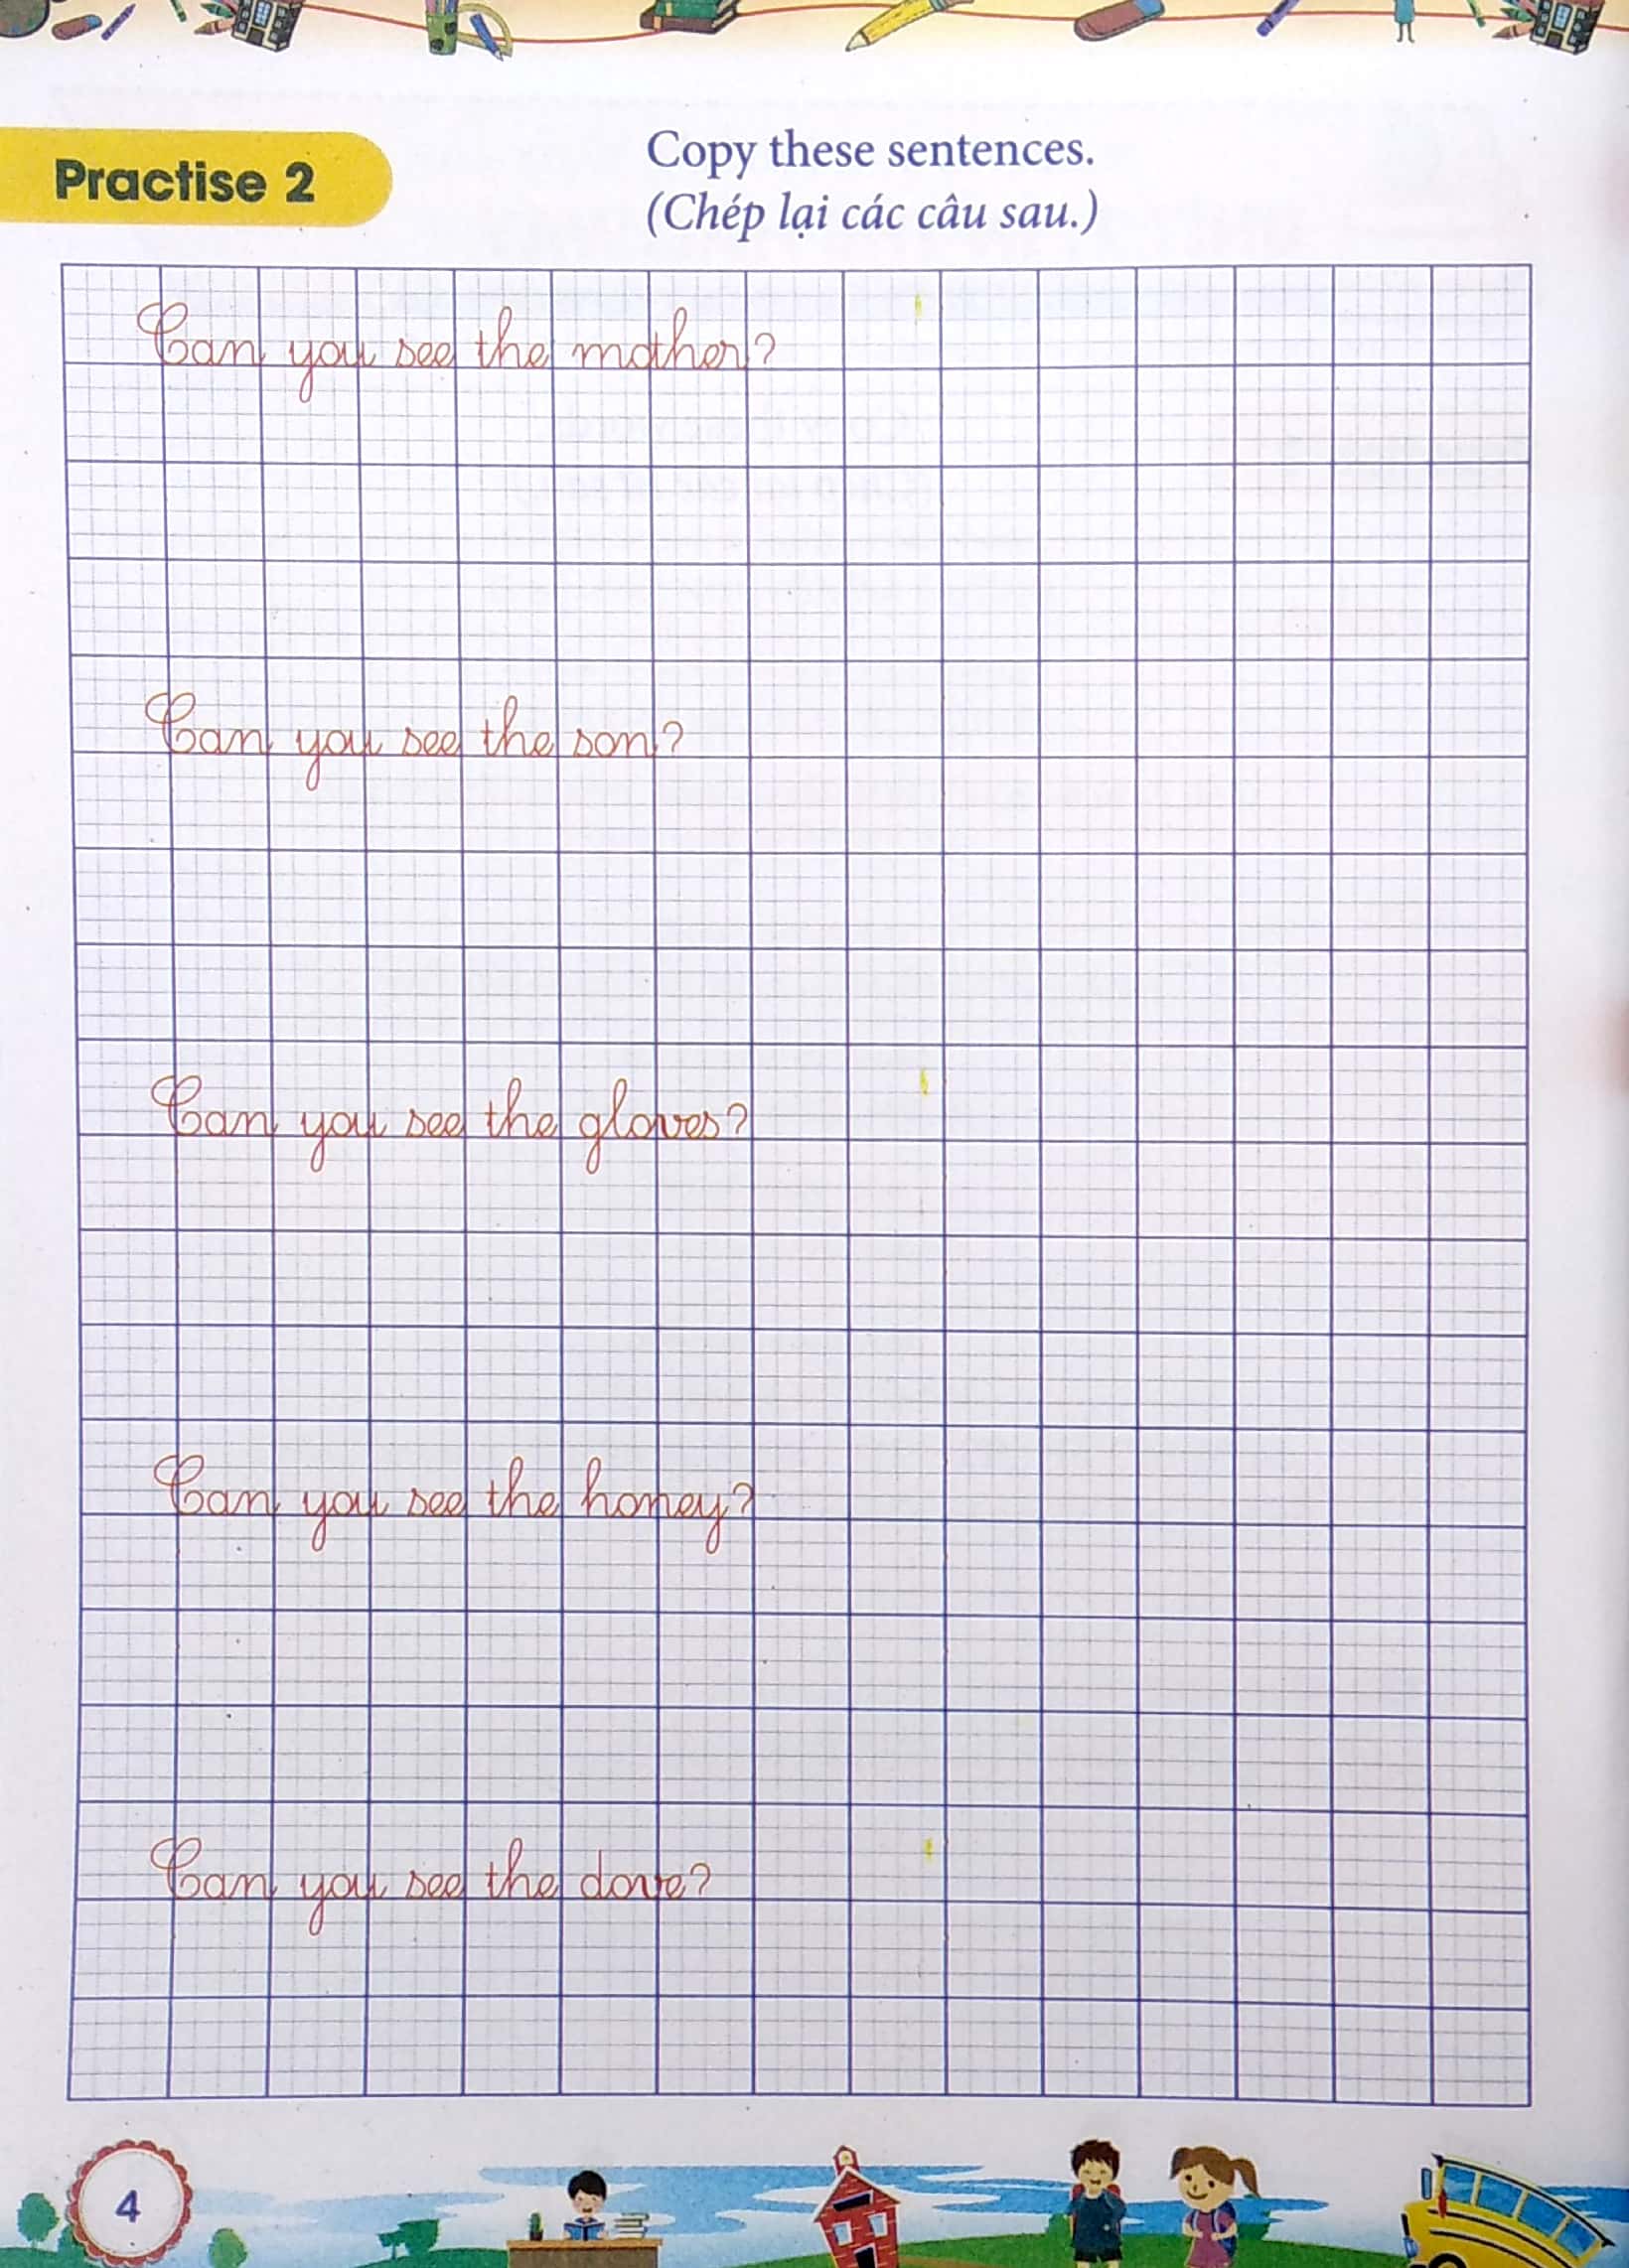 Practise 2
Copy these sentences.
(Chép lại các câu sau.)
Can you see the mother?
Can you see the son?
Can you see the gloves?
Can you see the honey?
Can you see the dove?
4